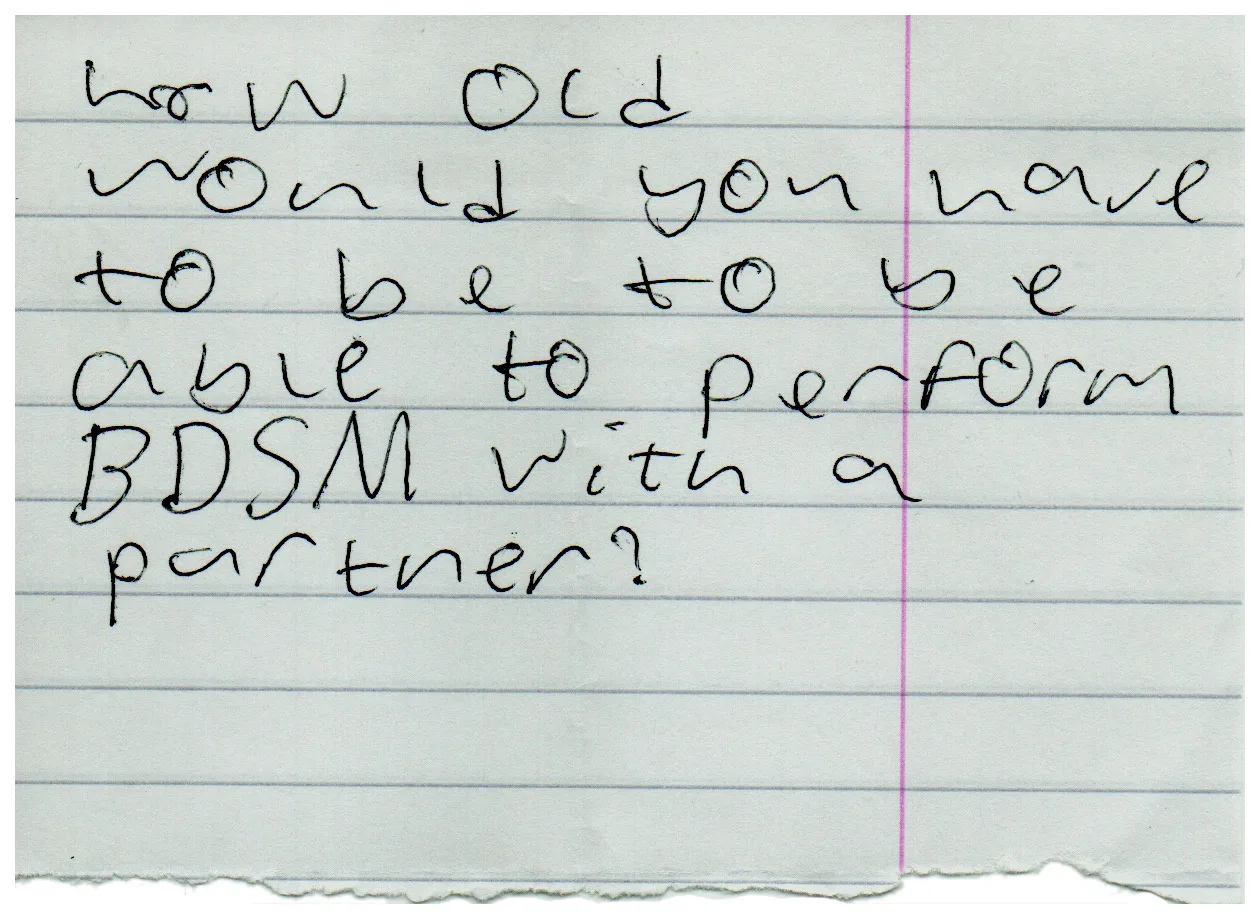 how old
would you have
to be to be
able to perform
BDSM with a
partner?